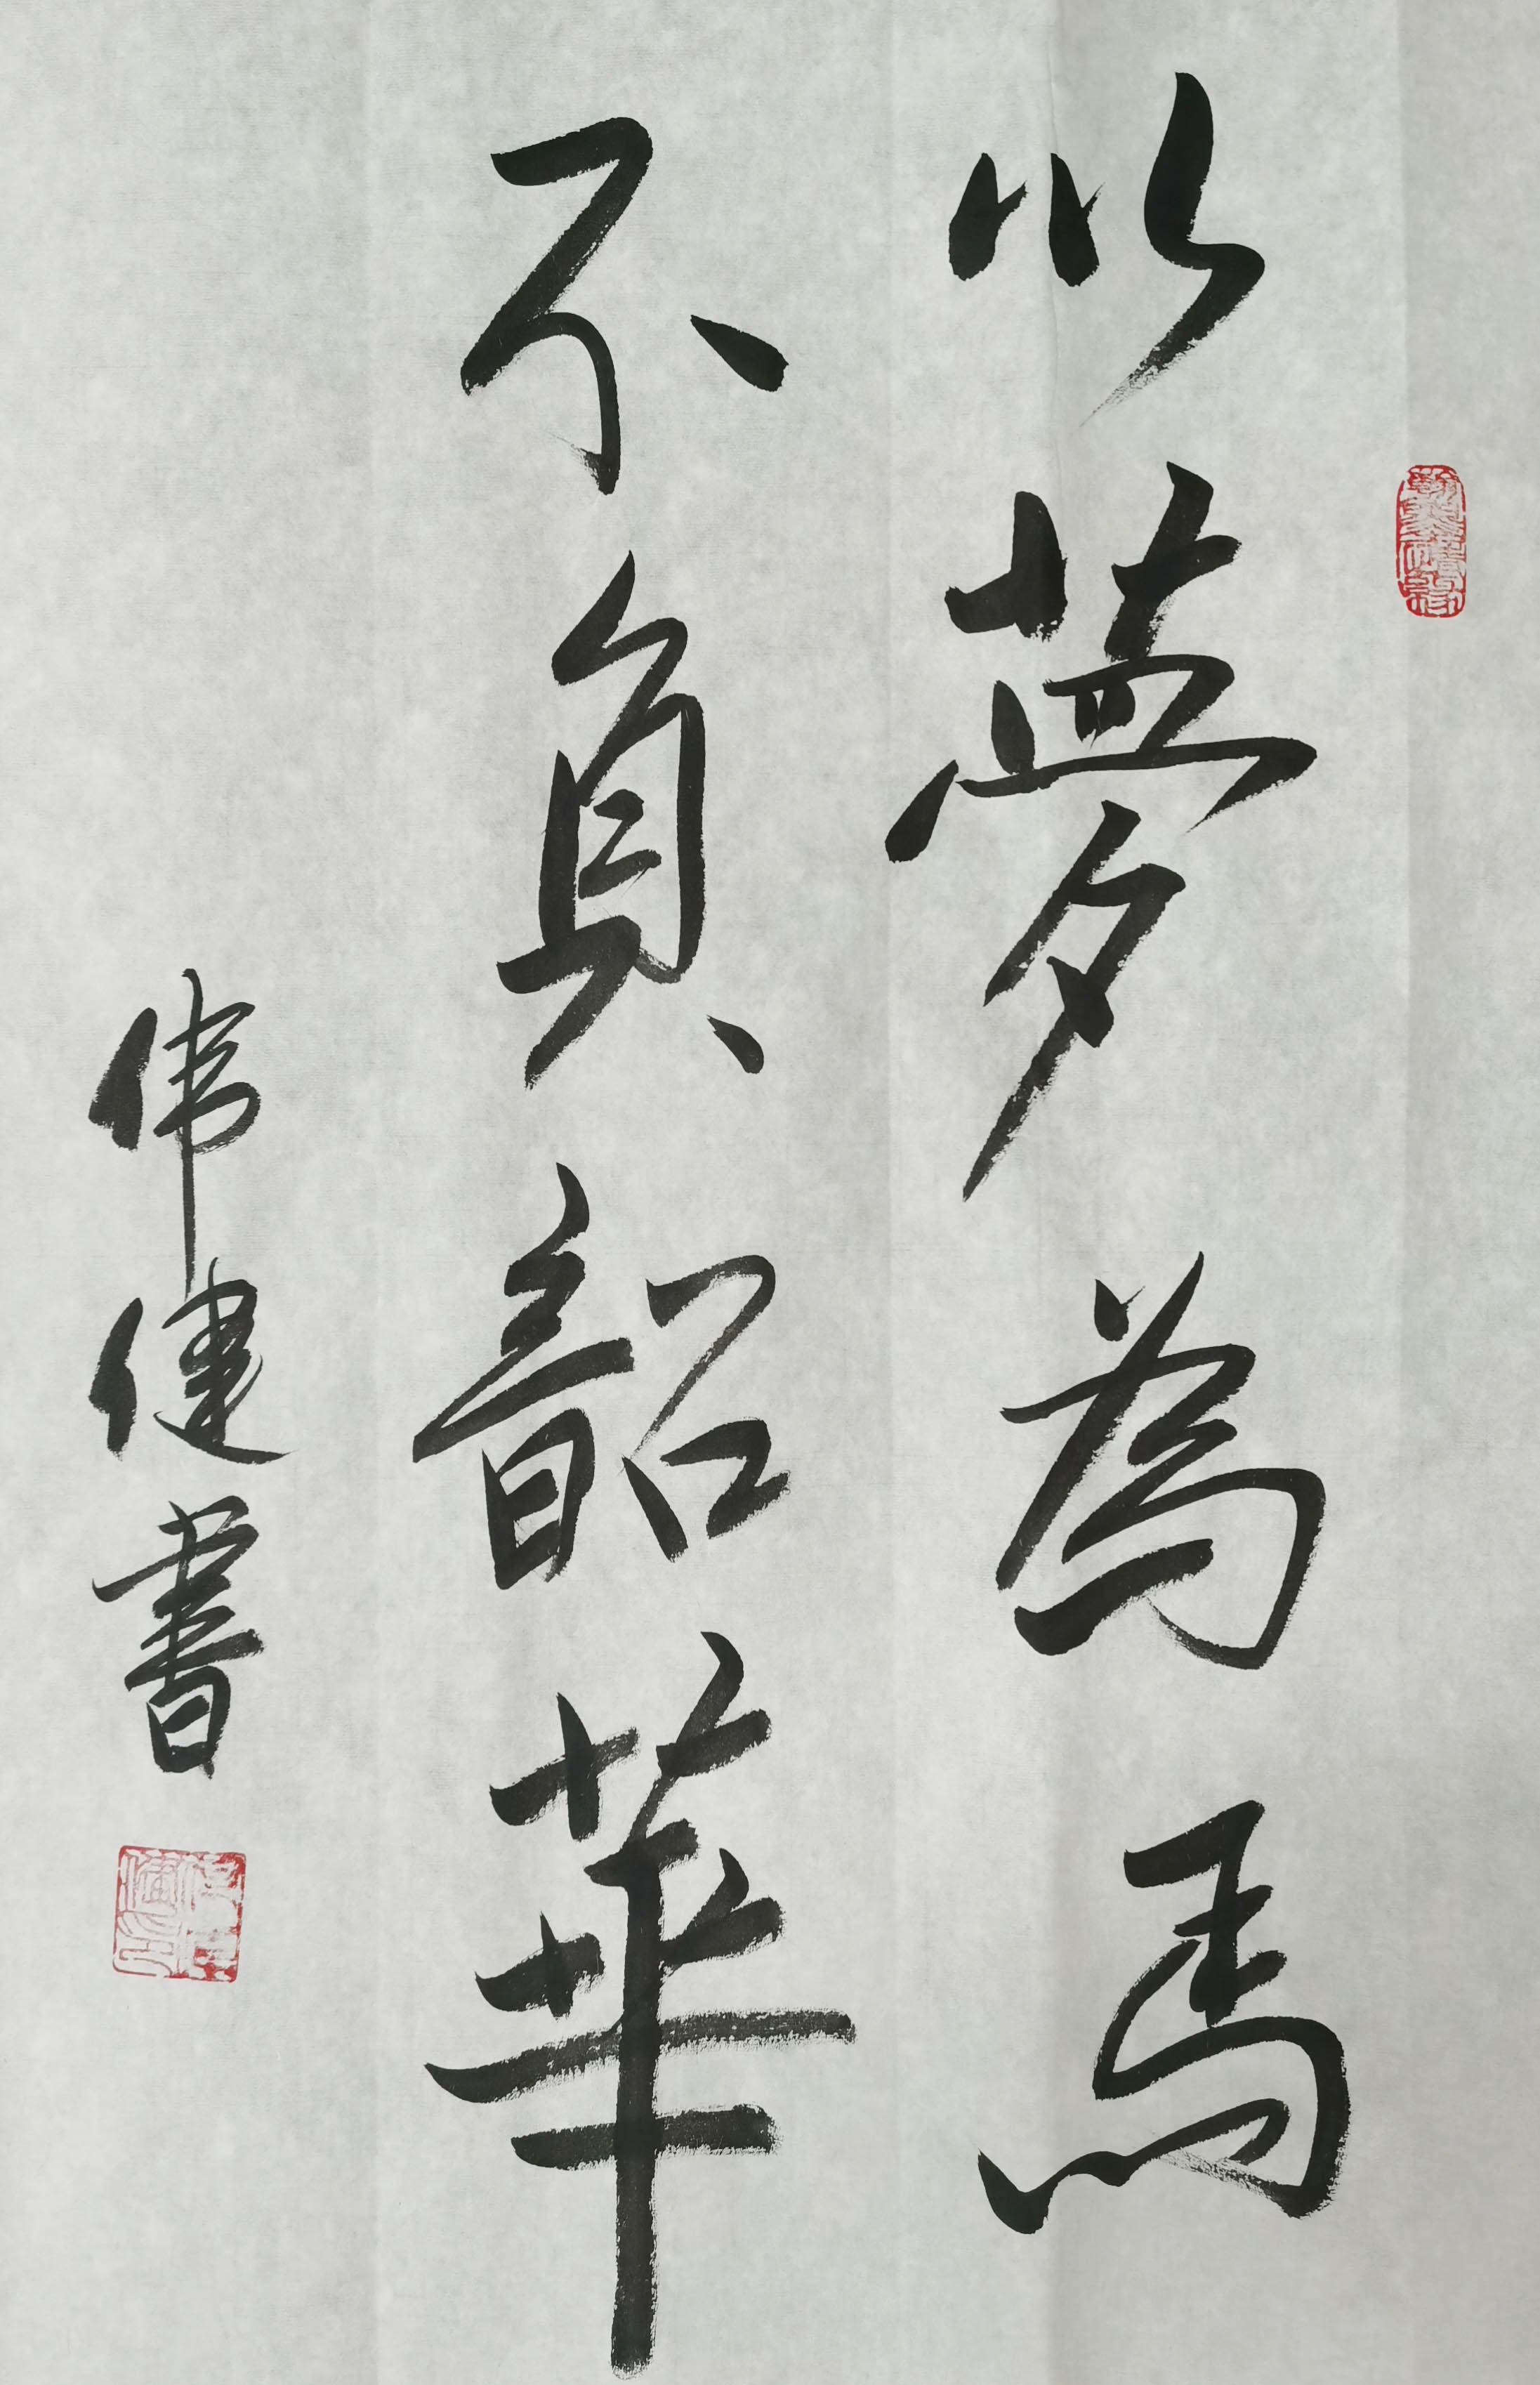 以夢為馬
不負韶華
伟健書